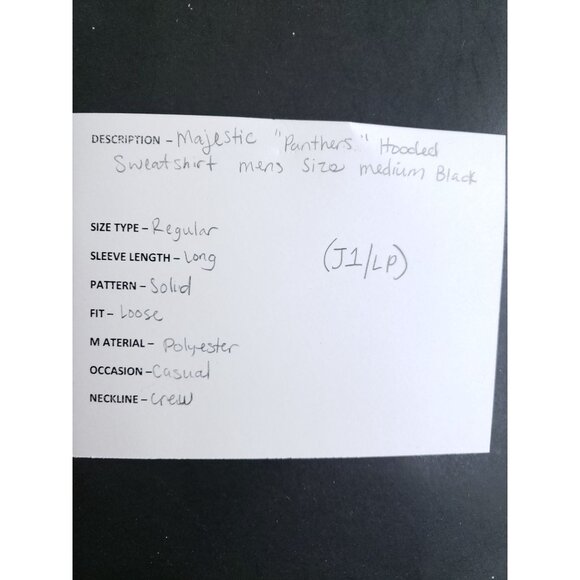 DESCRIPTION - Majestic "Panthers" Hooded
Sweatshirt mens Size medium Black
SIZE TYPE - Regular
SLEEVE LENGTH - Long
(J1/LP)
PATTERN - Solid
FIT - Loose
MATERIAL - Polyester
OCCASION - Casual
NECKLINE - Crew